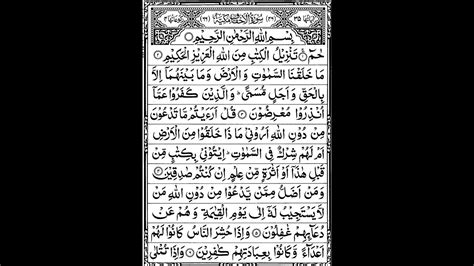 سُوْرَةُ الْاَحْقَافِ مَكِّيَّةٌ
بِسْمِ اللّٰهِ الرَّحْمٰنِ الرَّحِيْمِ
حٰمٓ تَنْزِيْلُ الْكِتٰبِ مِنَ اللّٰهِ الْعَزِيْزِ الْحَكِيْمِ
مَا خَلَقْنَا السَّمٰوٰتِ وَ الْاَرْضَ وَمَا بَيْنَهُمَاۤ اِلَّا
بِالْحَقِّ وَ اَجَلٍ مُّسَمًّى وَ الَّذِيْنَ كَفَرُوْا عَمَّاۤ
اُنْذِرُوْا مُعْرِضُوْنَ قُلْ اَرَءَيْتُمْ مَّا تَدْعُوْنَ
مِنْ دُوْنِ اللّٰهِ اَرُوْنِيْ مَا ذَا خَلَقُوْا مِنَ الْاَرْضِ
اَمْ لَهُمْ شِرْكٌ فِي السَّمٰوٰتِ اِيْتُوْنِيْ بِكِتٰبٍ مِّنْ
قَبْلِ هٰذَاۤ اَوْ اَثٰرَةٍ مِّنْ عِلْمٍ اِنْ كُنْتُمْ صٰدِقِيْنَ
وَمَنْ اَضَلُّ مِمَّنْ يَّدْعُوْا مِنْ دُوْنِ اللّٰهِ مَنْ
لَّا يَسْتَجِيْبُ لَهٗۤ اِلٰى يَوْمِ الْقِيٰمَةِ وَ هُمْ عَنْ
دُعَآئِهِمْ غٰفِلُوْنَ وَاِذَا حُشِرَ النَّاسُ كَانُوْا لَهُمْ
اَعْدَآءً وَّ كَانُوْا بِعِبَادَتِهِمْ كٰفِرِيْنَ وَاِذَا تُتْلٰى